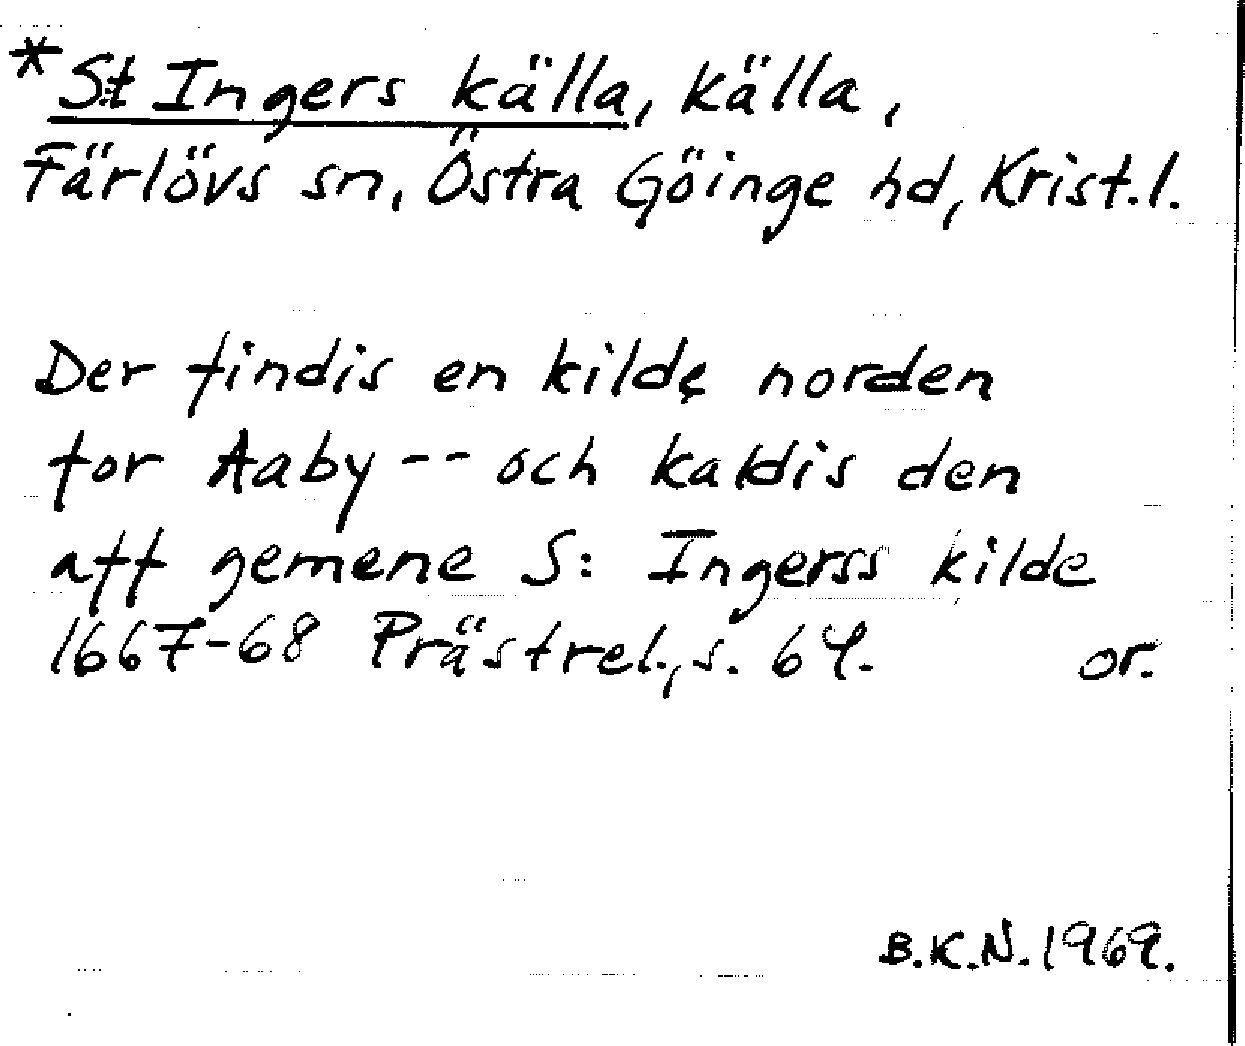 *S:t Ingers källa, källa,
Färlövs sn, Östra Göinge hd, Krist. l.
Der findis en kilde norden
for Aaby -- och kaldis den
aff gemene S: Ingerss kilde
1667-68 Prästrel., s. 64. or.
B.K.N. 1969.